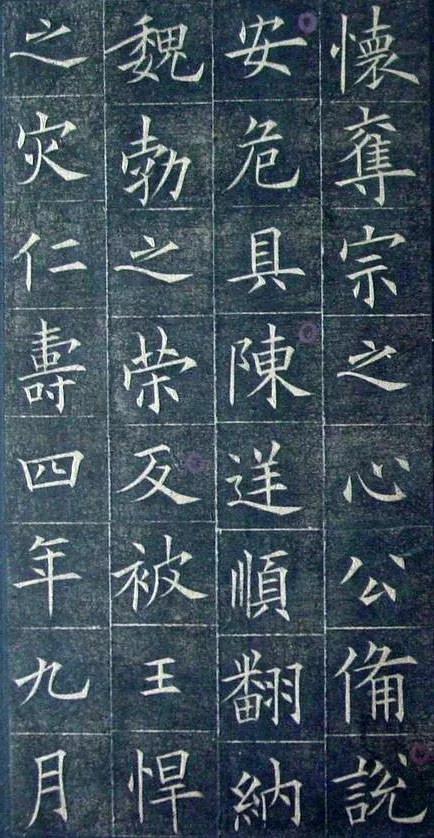 懷奪宗之心公備說
安危具陳逆順翻納
魏勃之榮反被王悍
之灾仁壽四年九月